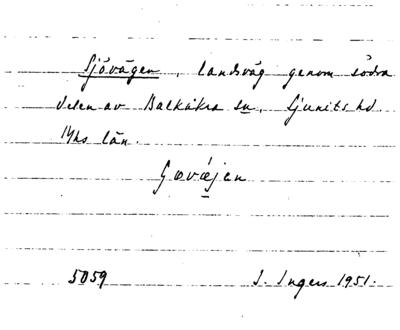 Sjövägen, landsväg genom södra
delen av Balkåkra sn, Ljunits hd
Mhs län.
Govæjen
5059 I. Ingers 1951.